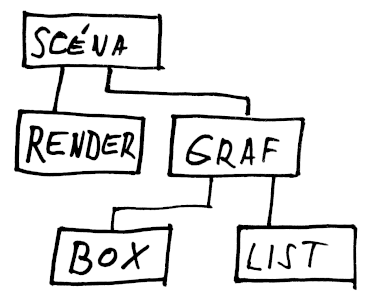 SCÉNA
RENDER
GRAF
BOX
LIST